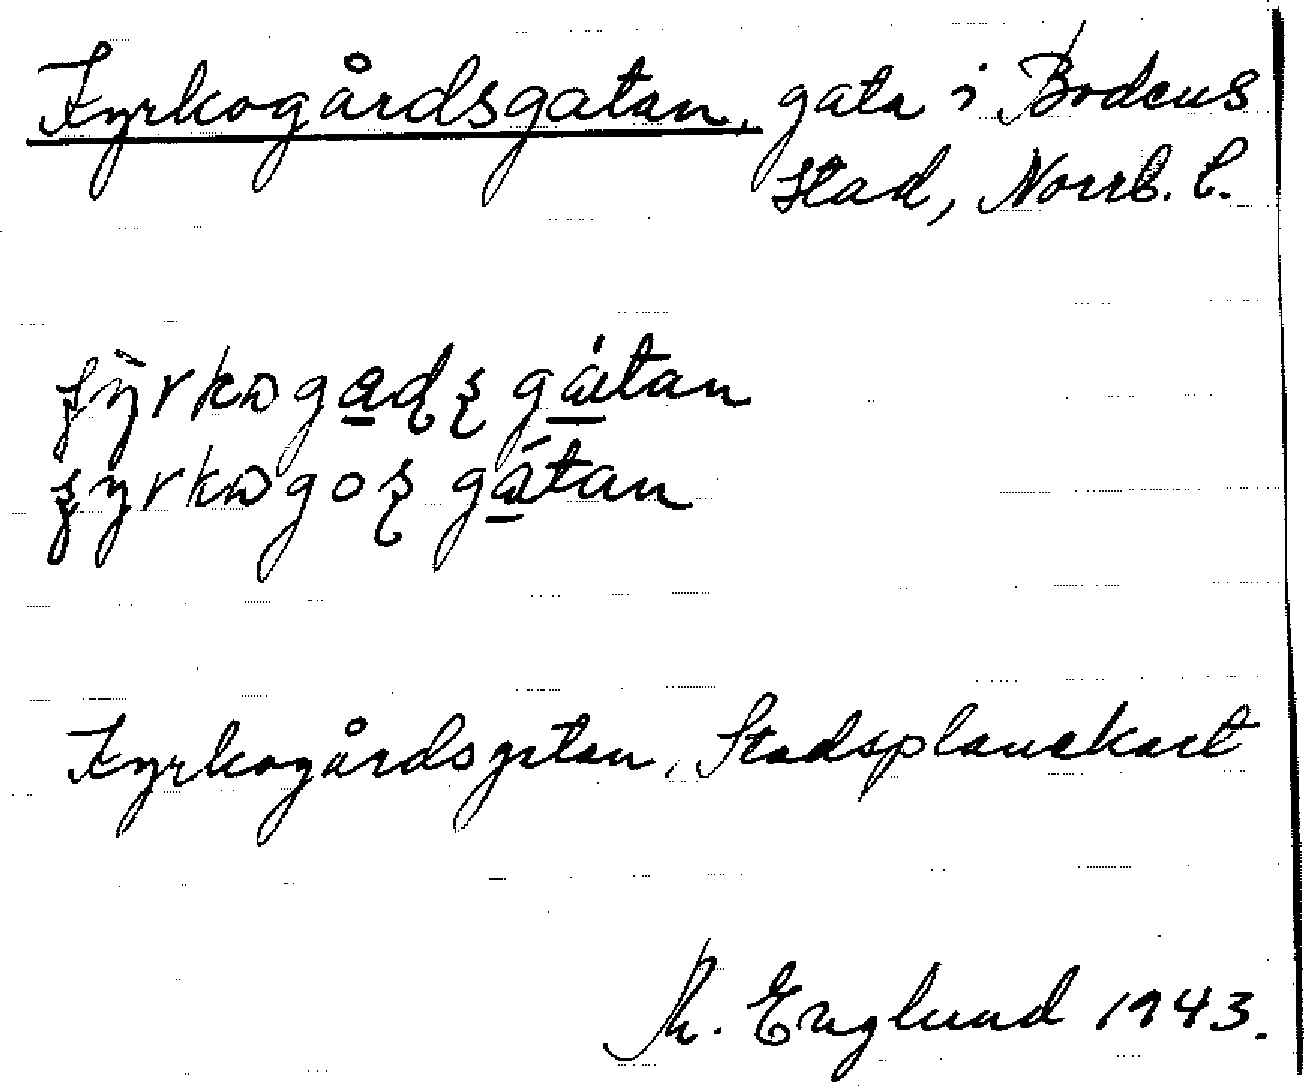 Kyrkogårdsgatan, gata i Bodens
stad, Norrb. l.
Kyrkogårdsgatan, Stadsplanekart
R. Englund 1943.